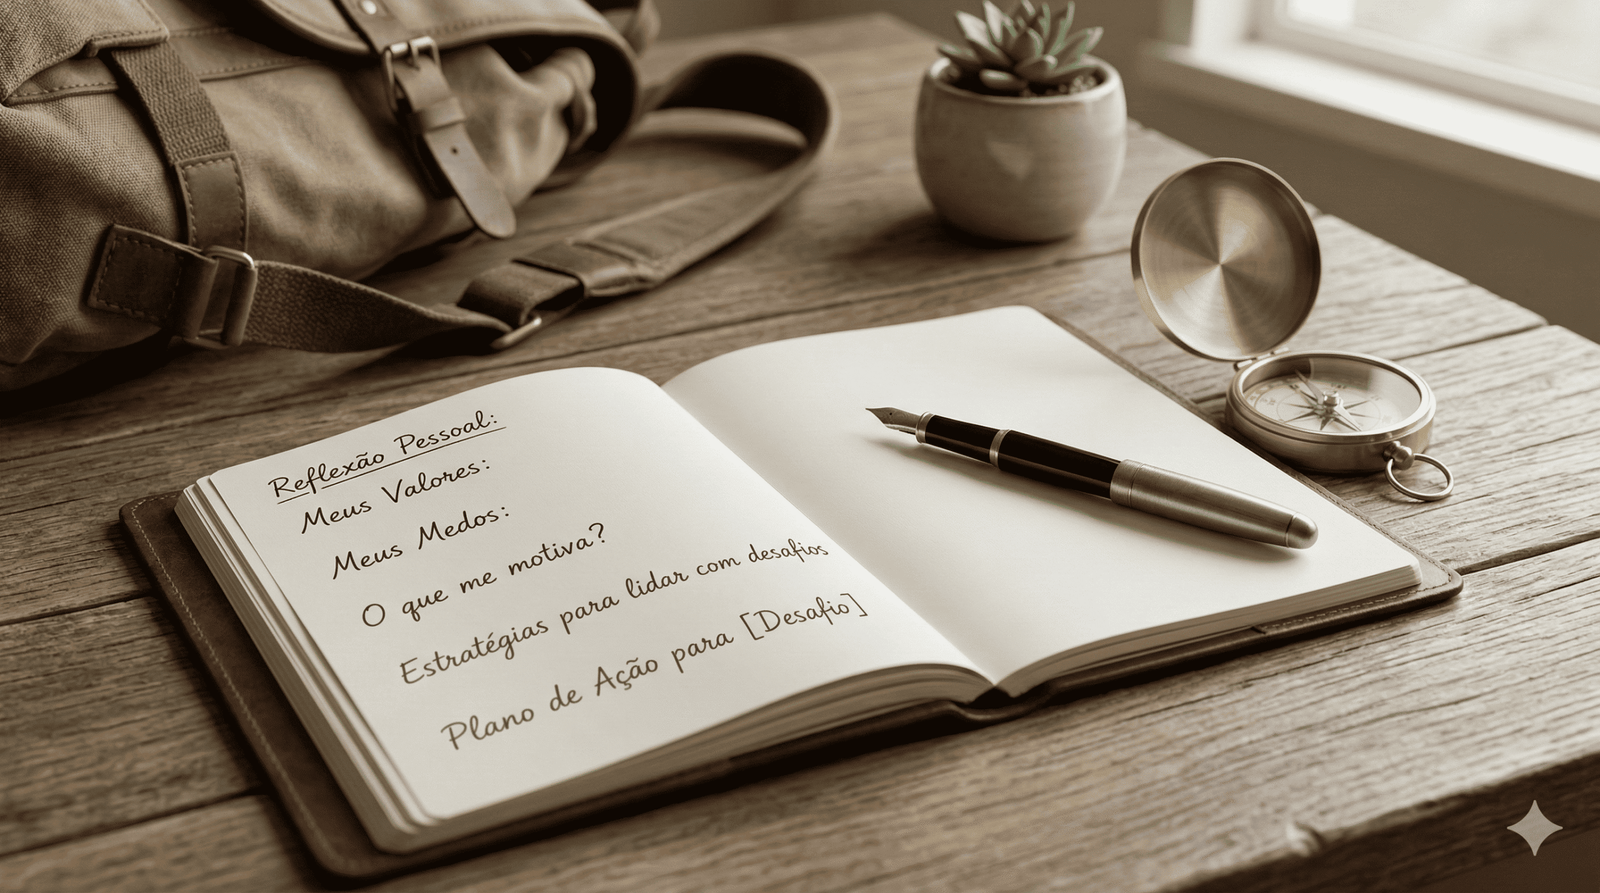 Reflexão Pessoal:
Meus Valores:
Meus Medos:
O que me motiva?
Estratégias para lidar com desafios
Plano de Ação para [Desafio]